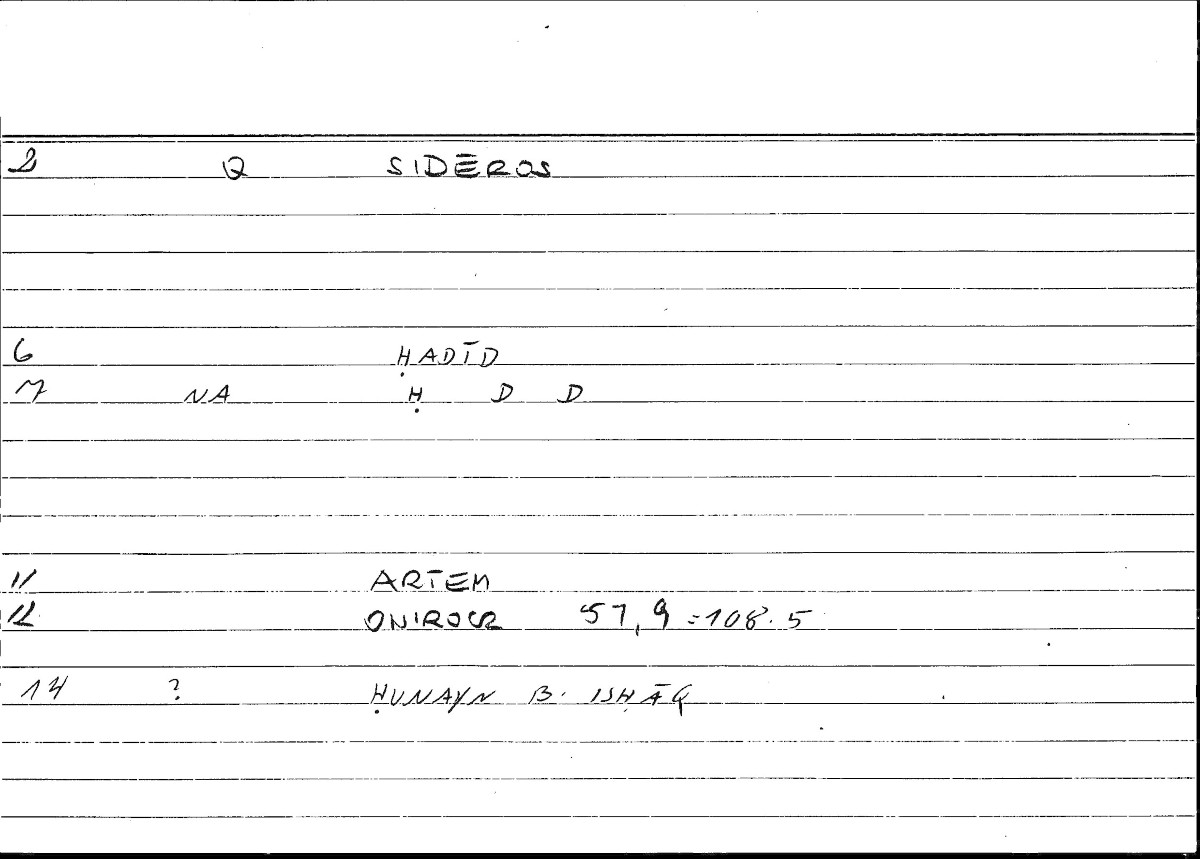 2 Q SIDĒROS
6 ḤADĪD
7 NA Ḥ D D
11 ARTEM
12 ONIROCR 57,9=108.5
14 ? ḤUNAYN B. ISḤĀQ